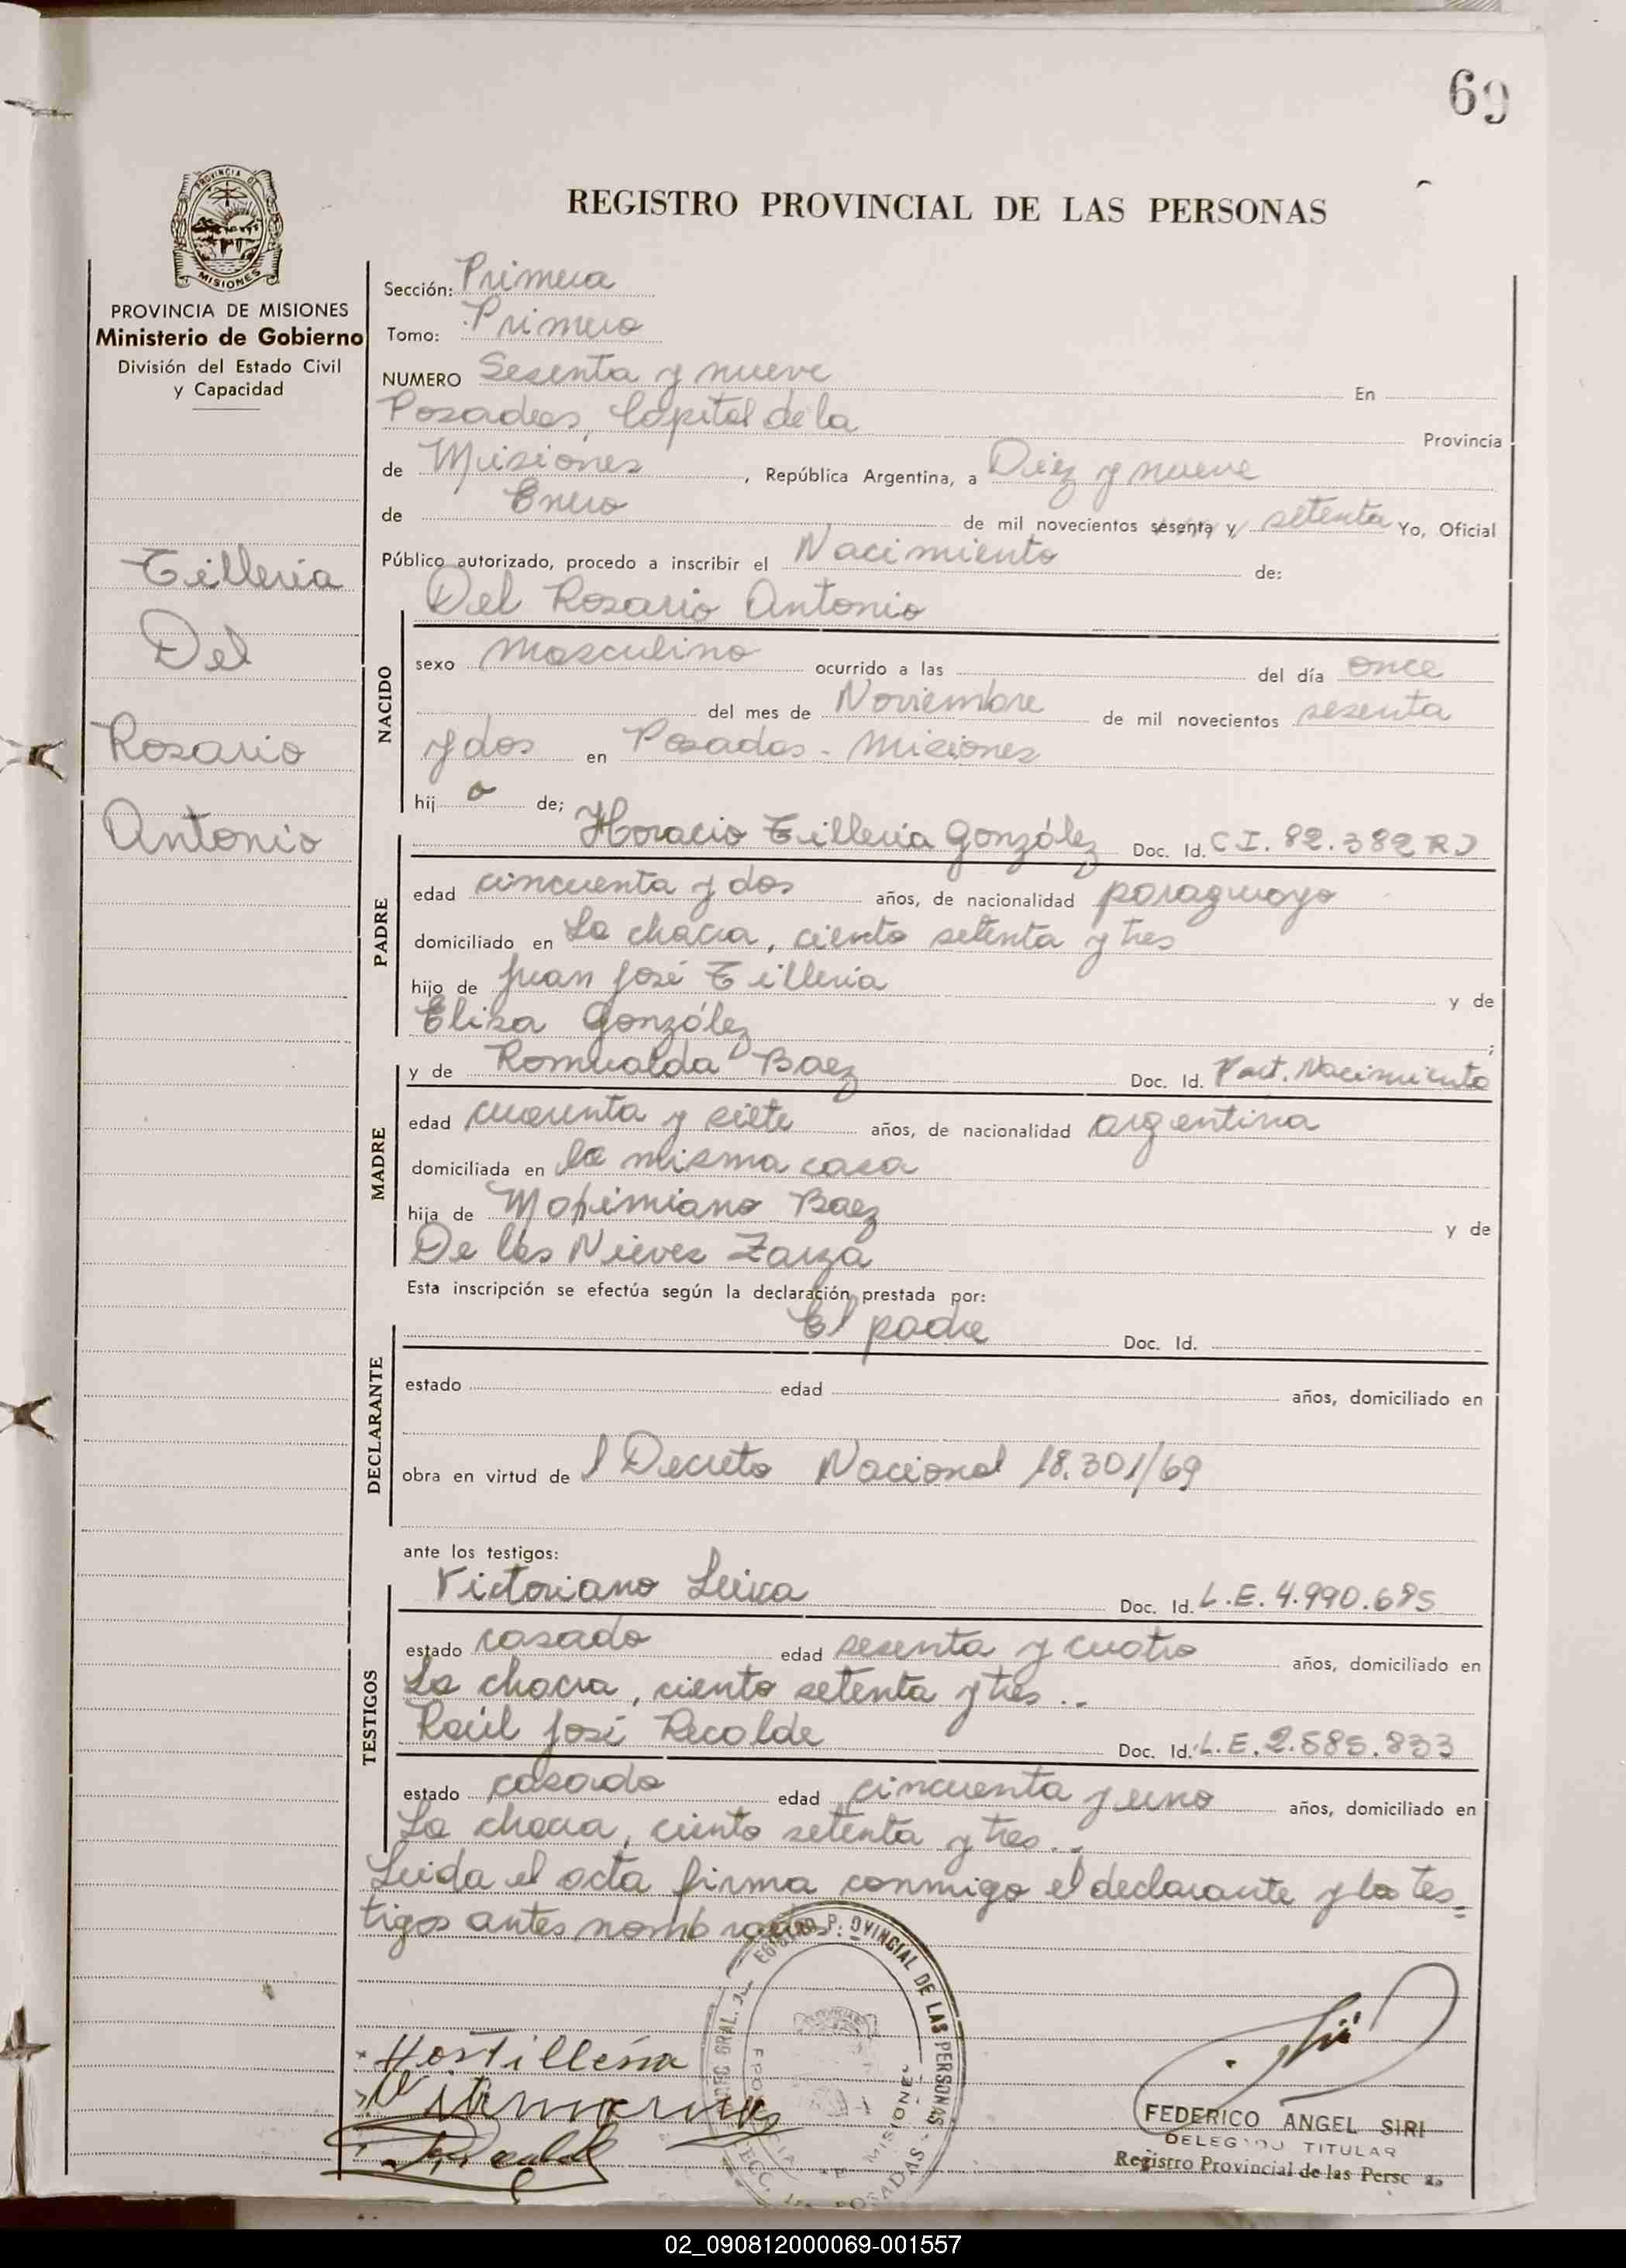 69
REGISTRO PROVINCIAL DE LAS PERSONAS
PROVINCIA DE MISIONES
Ministerio de Gobierno
División del Estado Civil
y Capacidad
Tilleria
Del
Rosario
Antonio
Sección: Primera
Tomo: Primero
NUMERO Sesenta y nueve En
Posadas, Capital de la Provincia
de Misiones, República Argentina, a Diez y nueve
de Enero de mil novecientos sesenta y setenta Yo, Oficial
Público autorizado, procedo a inscribir el Nacimiento de:
Del Rosario Antonio
NACIDO
sexo Masculino ocurrido a las del día once
del mes de Noviembre de mil novecientos sesenta
y dos en Posadas - Misiones
hij o de;
Horacio Tilleria González Doc. Id. C I. 82.382 RJ
PADRE
edad cincuenta y dos años, de nacionalidad paraguayo
domiciliado en La chacra, ciento setenta y tres
hijo de Juan José Tilleria y de
Elisa González;
y de Romualda Baez Doc. Id. Part. Nacimiento
MADRE
edad cuarenta y siete años, de nacionalidad argentina
domiciliada en la misma casa
hija de Baez y de
De las Nieves Zarza
Esta inscripción se efectúa según la declaración prestada por:
El padre Doc. Id.
DECLARANTE
estado edad años, domiciliado en
obra en virtud de l Decreto Nacional 18.301/69
ante los testigos:
Victoriano Leiva Doc. Id. L.E. 4.990.685
TESTIGOS
estado casado edad sesenta y cuatro años, domiciliado en
La chacra, ciento setenta y tres..
Raúl José Recalde Doc. Id. L.E. 2.585.833
estado casado edad cincuenta y uno años, domiciliado en
La chacra, ciento setenta y tres..
Leida el acta firma conmigo el declarante y los tes=
tigos antes nombrados
Hor Tilleria
FEDERICO ANGEL SIRI
DELEGADO TITULAR
Registro Provincial de las Persc as
02_090812000069-001557